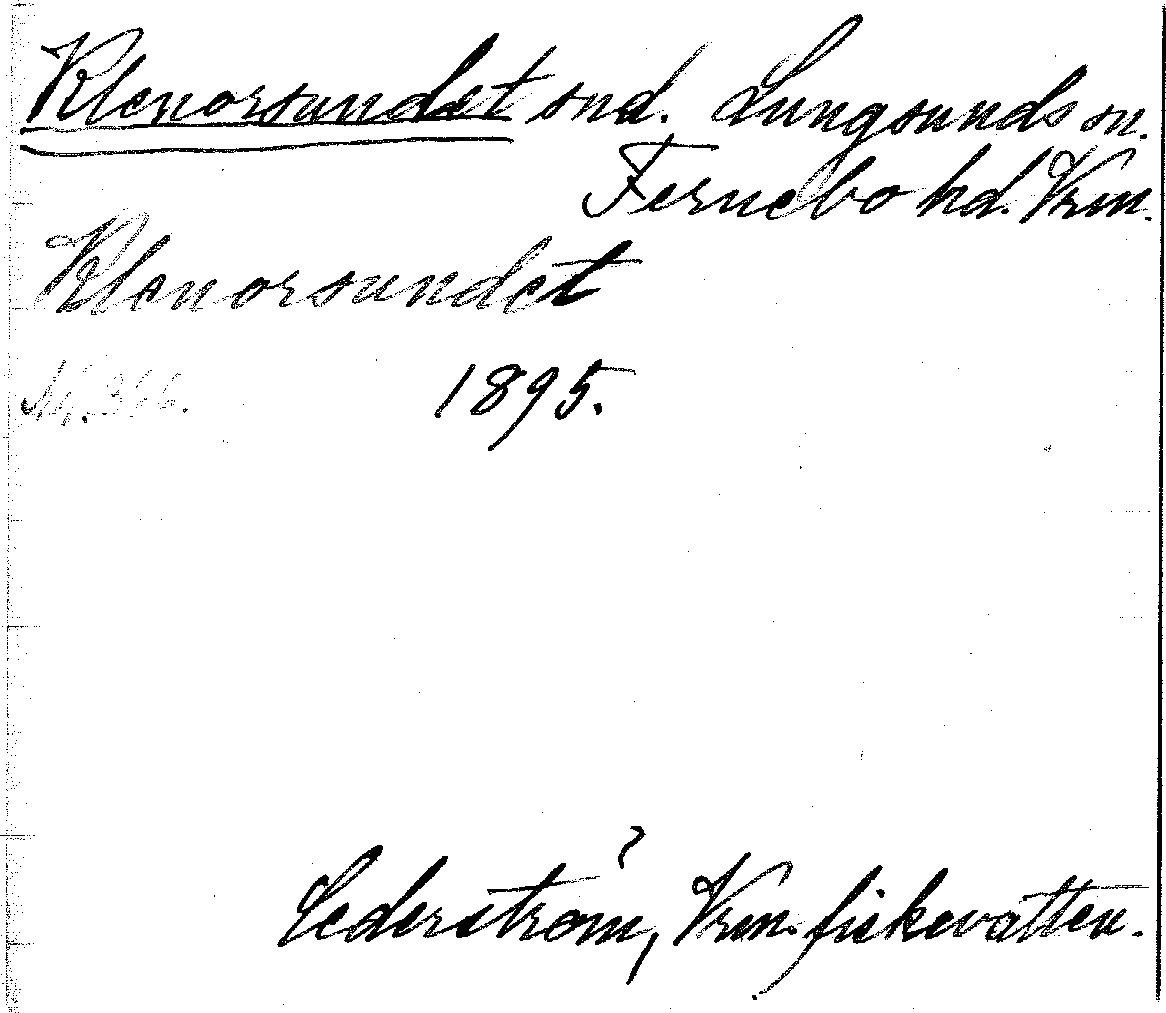 Klenorsundet snd. Lungsunds sn.
Fernebo hd. Vrm.
Klenorsundet
1895.
Cederström, Vrm. fiskevatten.